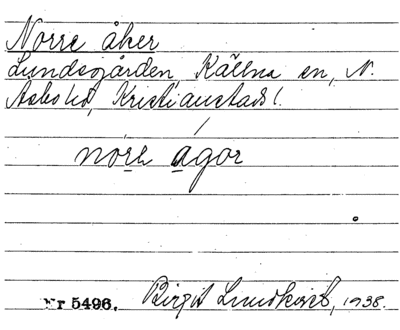 Norre åker
Lundsgården, Källna sn, N.
Åsbo hd, Kristianstads l.
nörr agor
Nr 5496. Birgit Lundkvist, 1938.